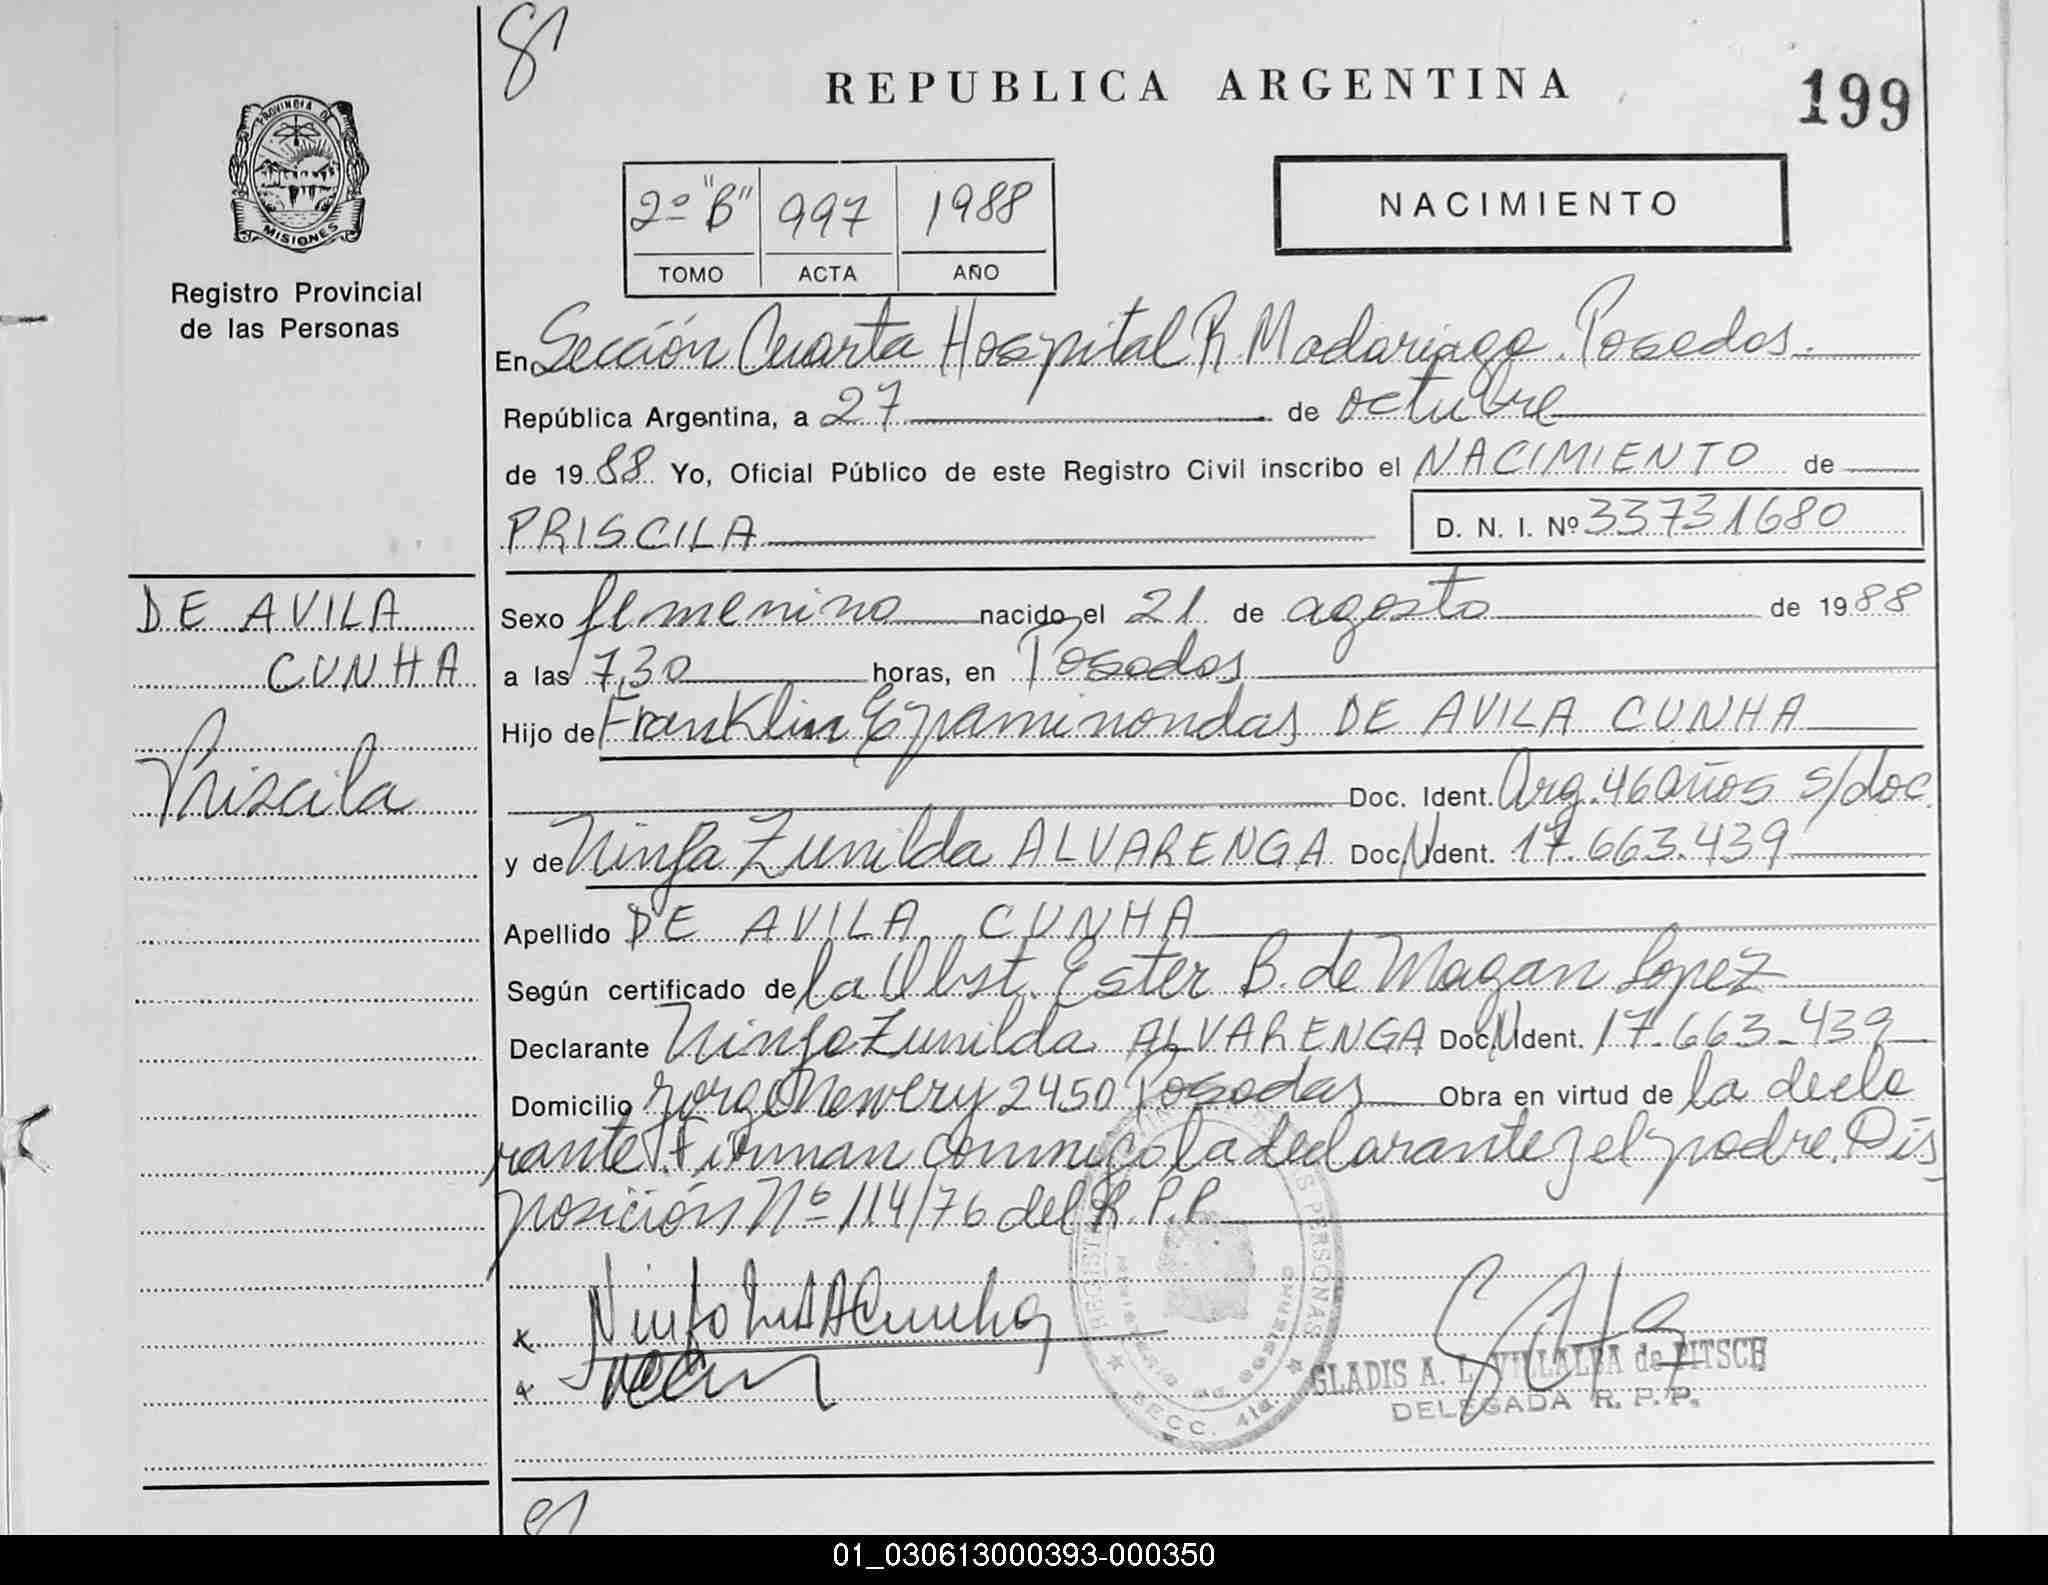 REPUBLICA ARGENTINA
199
PROVINCIA DE
MISIONES
Registro Provincial
de las Personas
2º "B" 997 1988
TOMO ACTA AÑO
NACIMIENTO
En Sección Cuarta Hospital R. Madariaga. Posadas.
República Argentina, a 27 de octubre
de 1988 Yo, Oficial Público de este Registro Civil inscribo el NACIMIENTO de
PRISCILA D. N. I. Nº 33731680
DE AVILA
CUNHA
Priscila
Sexo femenino nacido el 21 de agosto de 1988
a las 7,30 horas, en Posadas
Hijo de Franklin Epaminondas DE AVILA CUNHA
Doc. Ident. Arg. 46 años s/doc.
y de Ninfa Zunilda ALVARENGA Doc. N Ident. 17.663.439
Apellido DE AVILA CUNHA
Según certificado de la Obst. Ester B. de Magan Lopez
Declarante Ninfa Zunilda ALVARENGA Doc. N Ident. 17.663.439
Domicilio Jorge Newery 2450 Posadas Obra en virtud de la decla
rante. Firman conmigo la declarante y el padre. Dis
posición Nº 114/76 del R.P.P.
REGISTRO PERSONAS
MINISTERIO DE GOBIERNO
SECC. 4ta.
x Ninfa Cunha
x
GLADIS A. L. VILLALBA de PITSCH
DELEGADA R. P. P.
01_030613000393-000350